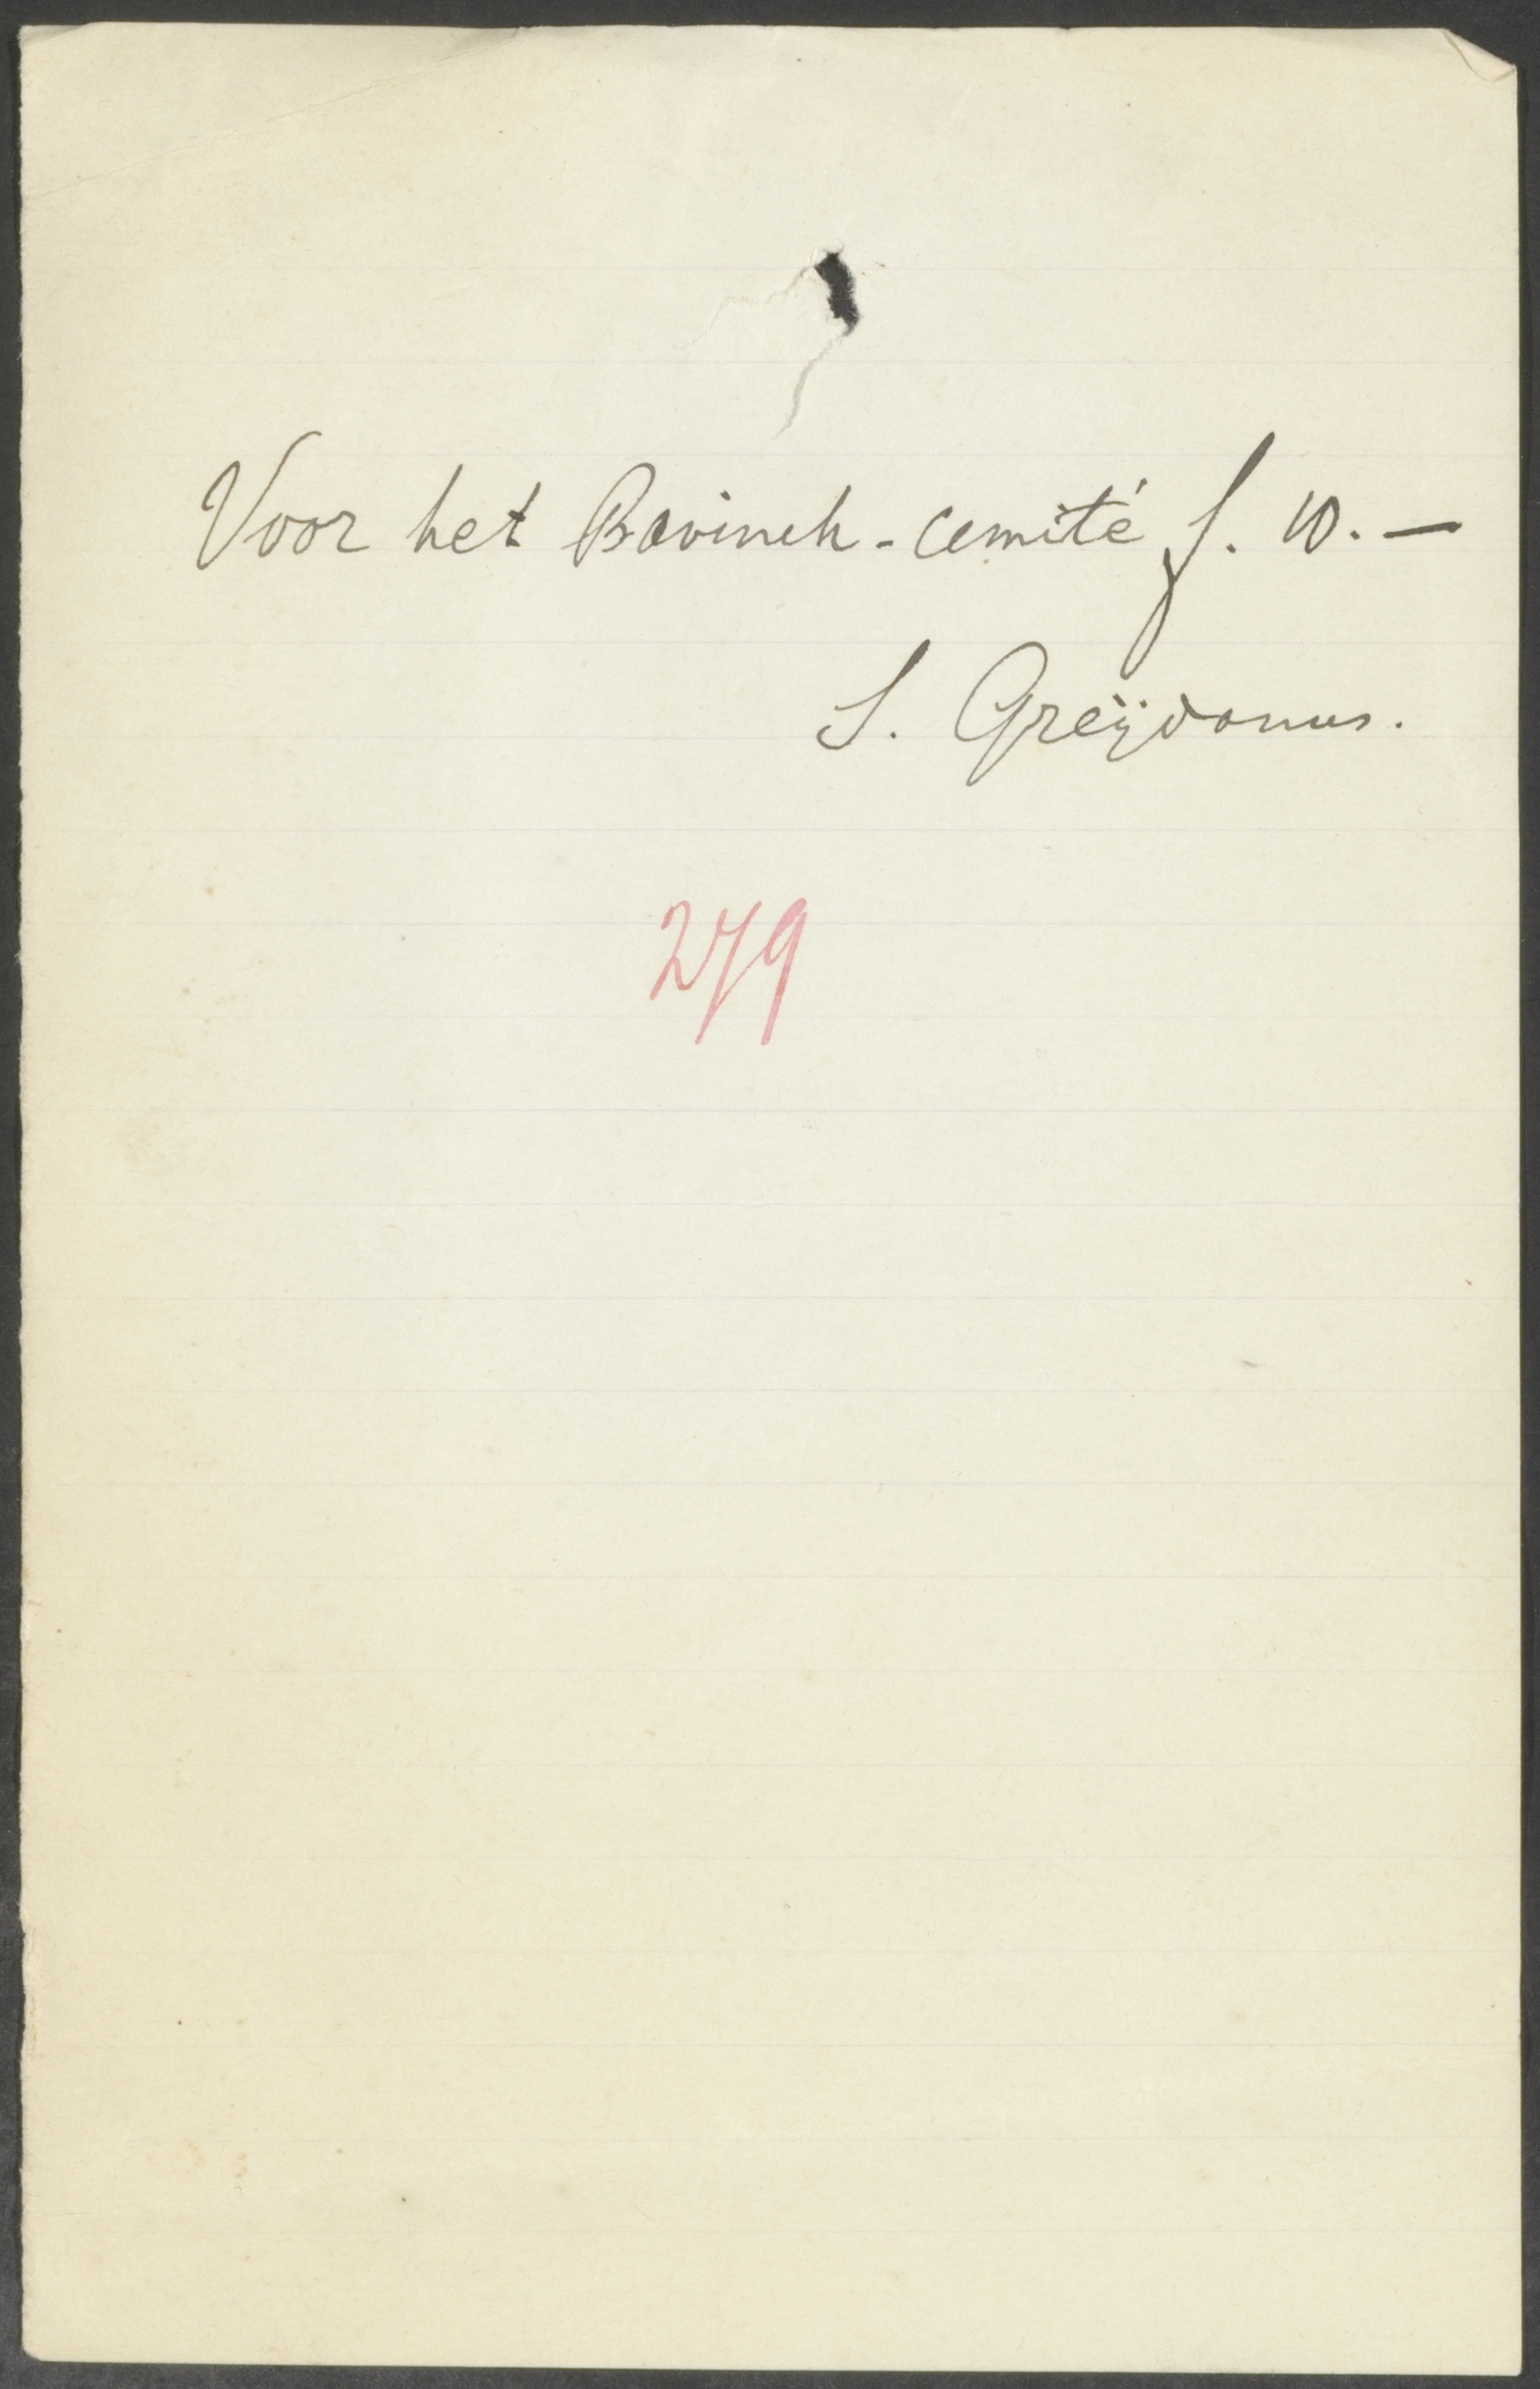 Voor het Bavinck-comité f. 10.—
S. Greijdanus.
279